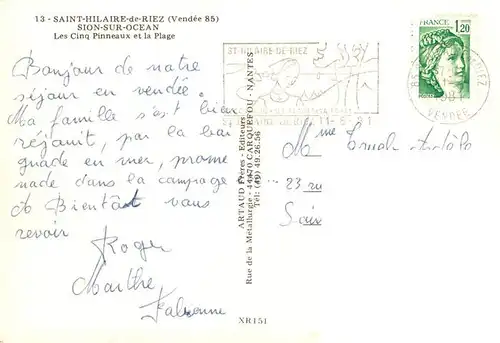 13 - SAINT-HILAIRE-de-RIEZ (Vendée 85)
SION-SUR-OCEAN
Les Cinq Pinneaux et la Plage
Bonjour de notre
séjour en vendée.
Ma famille s'est bien
réjouit, par la bai
gnade en mer, prome
nade dans la campagne
A Bientôt vous
revoir
Roger
Marthe
Fabienne
ST-HILAIRE-DE-RIEZ
11-8-81
FRANCE
1,20
VENDEE
ARTAUD Frères - Editeurs
Rue de la Métallurgie - 44470 CARQUEFOU - NANTES
Tél: (40) 49.26.36
XR151
Mme
23 ru